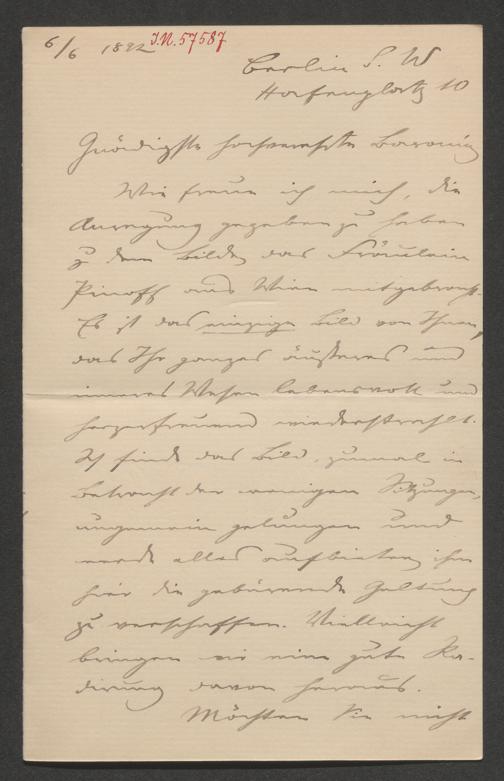 6/6 1892 I.N. 57587
Berlin S. W
Hafenplatz 10
Gnädigste hochverehrte Baronin
Wie freue ich mich, die
Anregung gegeben zu haben
zu dem Bilde, das Fräulein
Pinoff aus Wien mitgebracht.
Es ist das einzige Bild von Ihnen,
das Ihr ganzes äußeres und
inneres Wesen lebensvoll und
herzerfreuend wiederstrahlt.
Ich finde das Bild, zumal in
Betracht der wenigen Sitzungen,
ungemein gelungen und
werde alles aufbieten, ihm
hier die gebürende Geltung
zu verschaffen. Vielleicht
bringen wir eine gute Ra-
dirung davon heraus.
Möchten Sie nicht